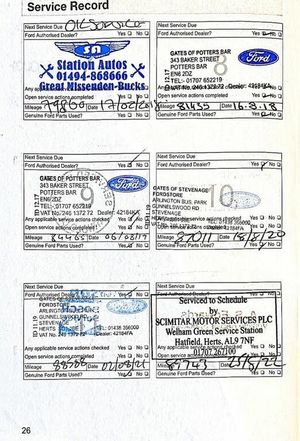 Service Record
Next Service Due OIL SERVICE
Ford Authorised Dealer? Yes No
SA
Station Autos
01494-868666
Great Missenden-Bucks
Open service actions completed Yes No
Mileage 79860 Date 17/02/201
Genuine Ford Parts Used? Yes No
Next Service Due
Ford Authorised Dealer? Yes No
GATES OF POTTERS BAR
343 BAKER STREET
POTTERS BAR
EN6 2DZ
TEL: 01707 652219
VAT No. 246 1372 72 Dealer: 42184
Open service actions completed Yes No
Mileage 81435 Date 16.3.18
Genuine Ford Parts Used? Yes No
Next Service Due
Ford Authorised Dealer? Yes No
GATES OF POTTERS BAR
343 BAKER STREET
POTTERS BAR
EN6 2DZ
TEL: 01707 652219
VAT No. 246 1372 72 Dealer: 42184
9
Open service actions completed Yes No
Mileage 84465 Date 06/03/19
Genuine Ford Parts Used? Yes No
Next Service Due
Ford Authorised Dealer? Yes No
10
GATES OF STEVENAGE
FORDSTORE
ARLINGTON BUS. PARK
GUNNELSWOOD RD
STEVENAGE
Any applicable service actions checked Yes No
Open service actions completed Yes No
Mileage 87011 Date 18/8/20
Genuine Ford Parts Used? Yes No
Next Service Due
Ford Authorised Dealer? Yes No
GATES OF
FORDSTORE
ARLINGTON
GUNNELSW
STEVENAGE
TEL: 01438 356000
Any applicable service actions checked Yes No
Open service actions completed Yes No
Mileage 88588 Date 02/08/21
Genuine Ford Parts Used? Yes No
Next Service Due
Serviced to Schedule
by
SCIMITAR MOTOR SERVICES PLC
Welham Green Service Station
Hatfield, Herts, AL9 7NF
01707 267100
Open service actions completed Yes No
Mileage 89743 Date 23/8/22
Genuine Ford Parts Used? Yes No
26